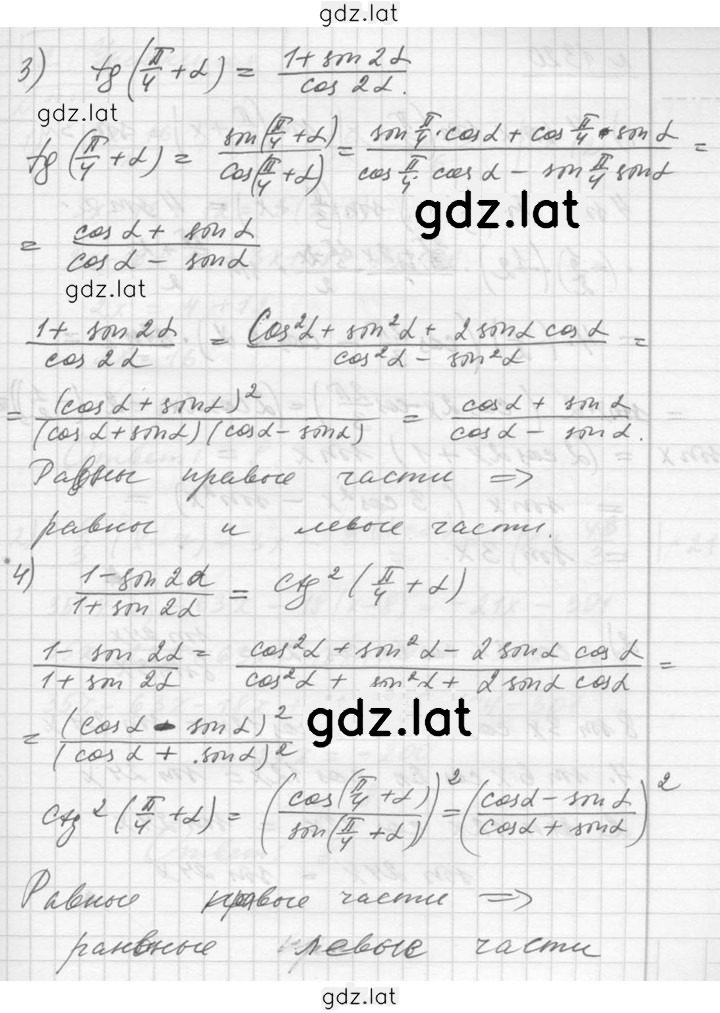 gdz.lat
3) tg(π/4 + α) = (1 + sin 2α)/(cos 2α).
gdz.lat
tg(π/4 + α) = sin(π/4 + α)/cos(π/4 + α) = (sin π/4 · cos α + cos π/4 · sin α)/(cos π/4 · cos α − sin π/4 sin α) =
gdz.lat
= (cos α + sin α)/(cos α − sin α)
gdz.lat
(1 + sin 2α)/(cos 2α) = (cos²α + sin²α + 2 sin α cos α)/(cos²α − sin²α) =
= (cos α + sin α)²/((cos α + sin α)(cos α − sin α)) = (cos α + sin α)/(cos α − sin α).
Равны правые части ⇒
равные и левые части.
4) (1 − sin 2α)/(1 + sin 2α) = ctg²(π/4 + α)
(1 − sin 2α)/(1 + sin 2α) = (cos²α + sin²α − 2 sin α cos α)/(cos²α + sin²α + 2 sin α cos α) =
gdz.lat
= (cos α − sin α)²/(cos α + sin α)²
ctg²(π/4 + α) = (cos(π/4 + α)/sin(π/4 + α))² = ((cos α − sin α)/(cos α + sin α))²
Равные правые части ⇒
левые части
gdz.lat